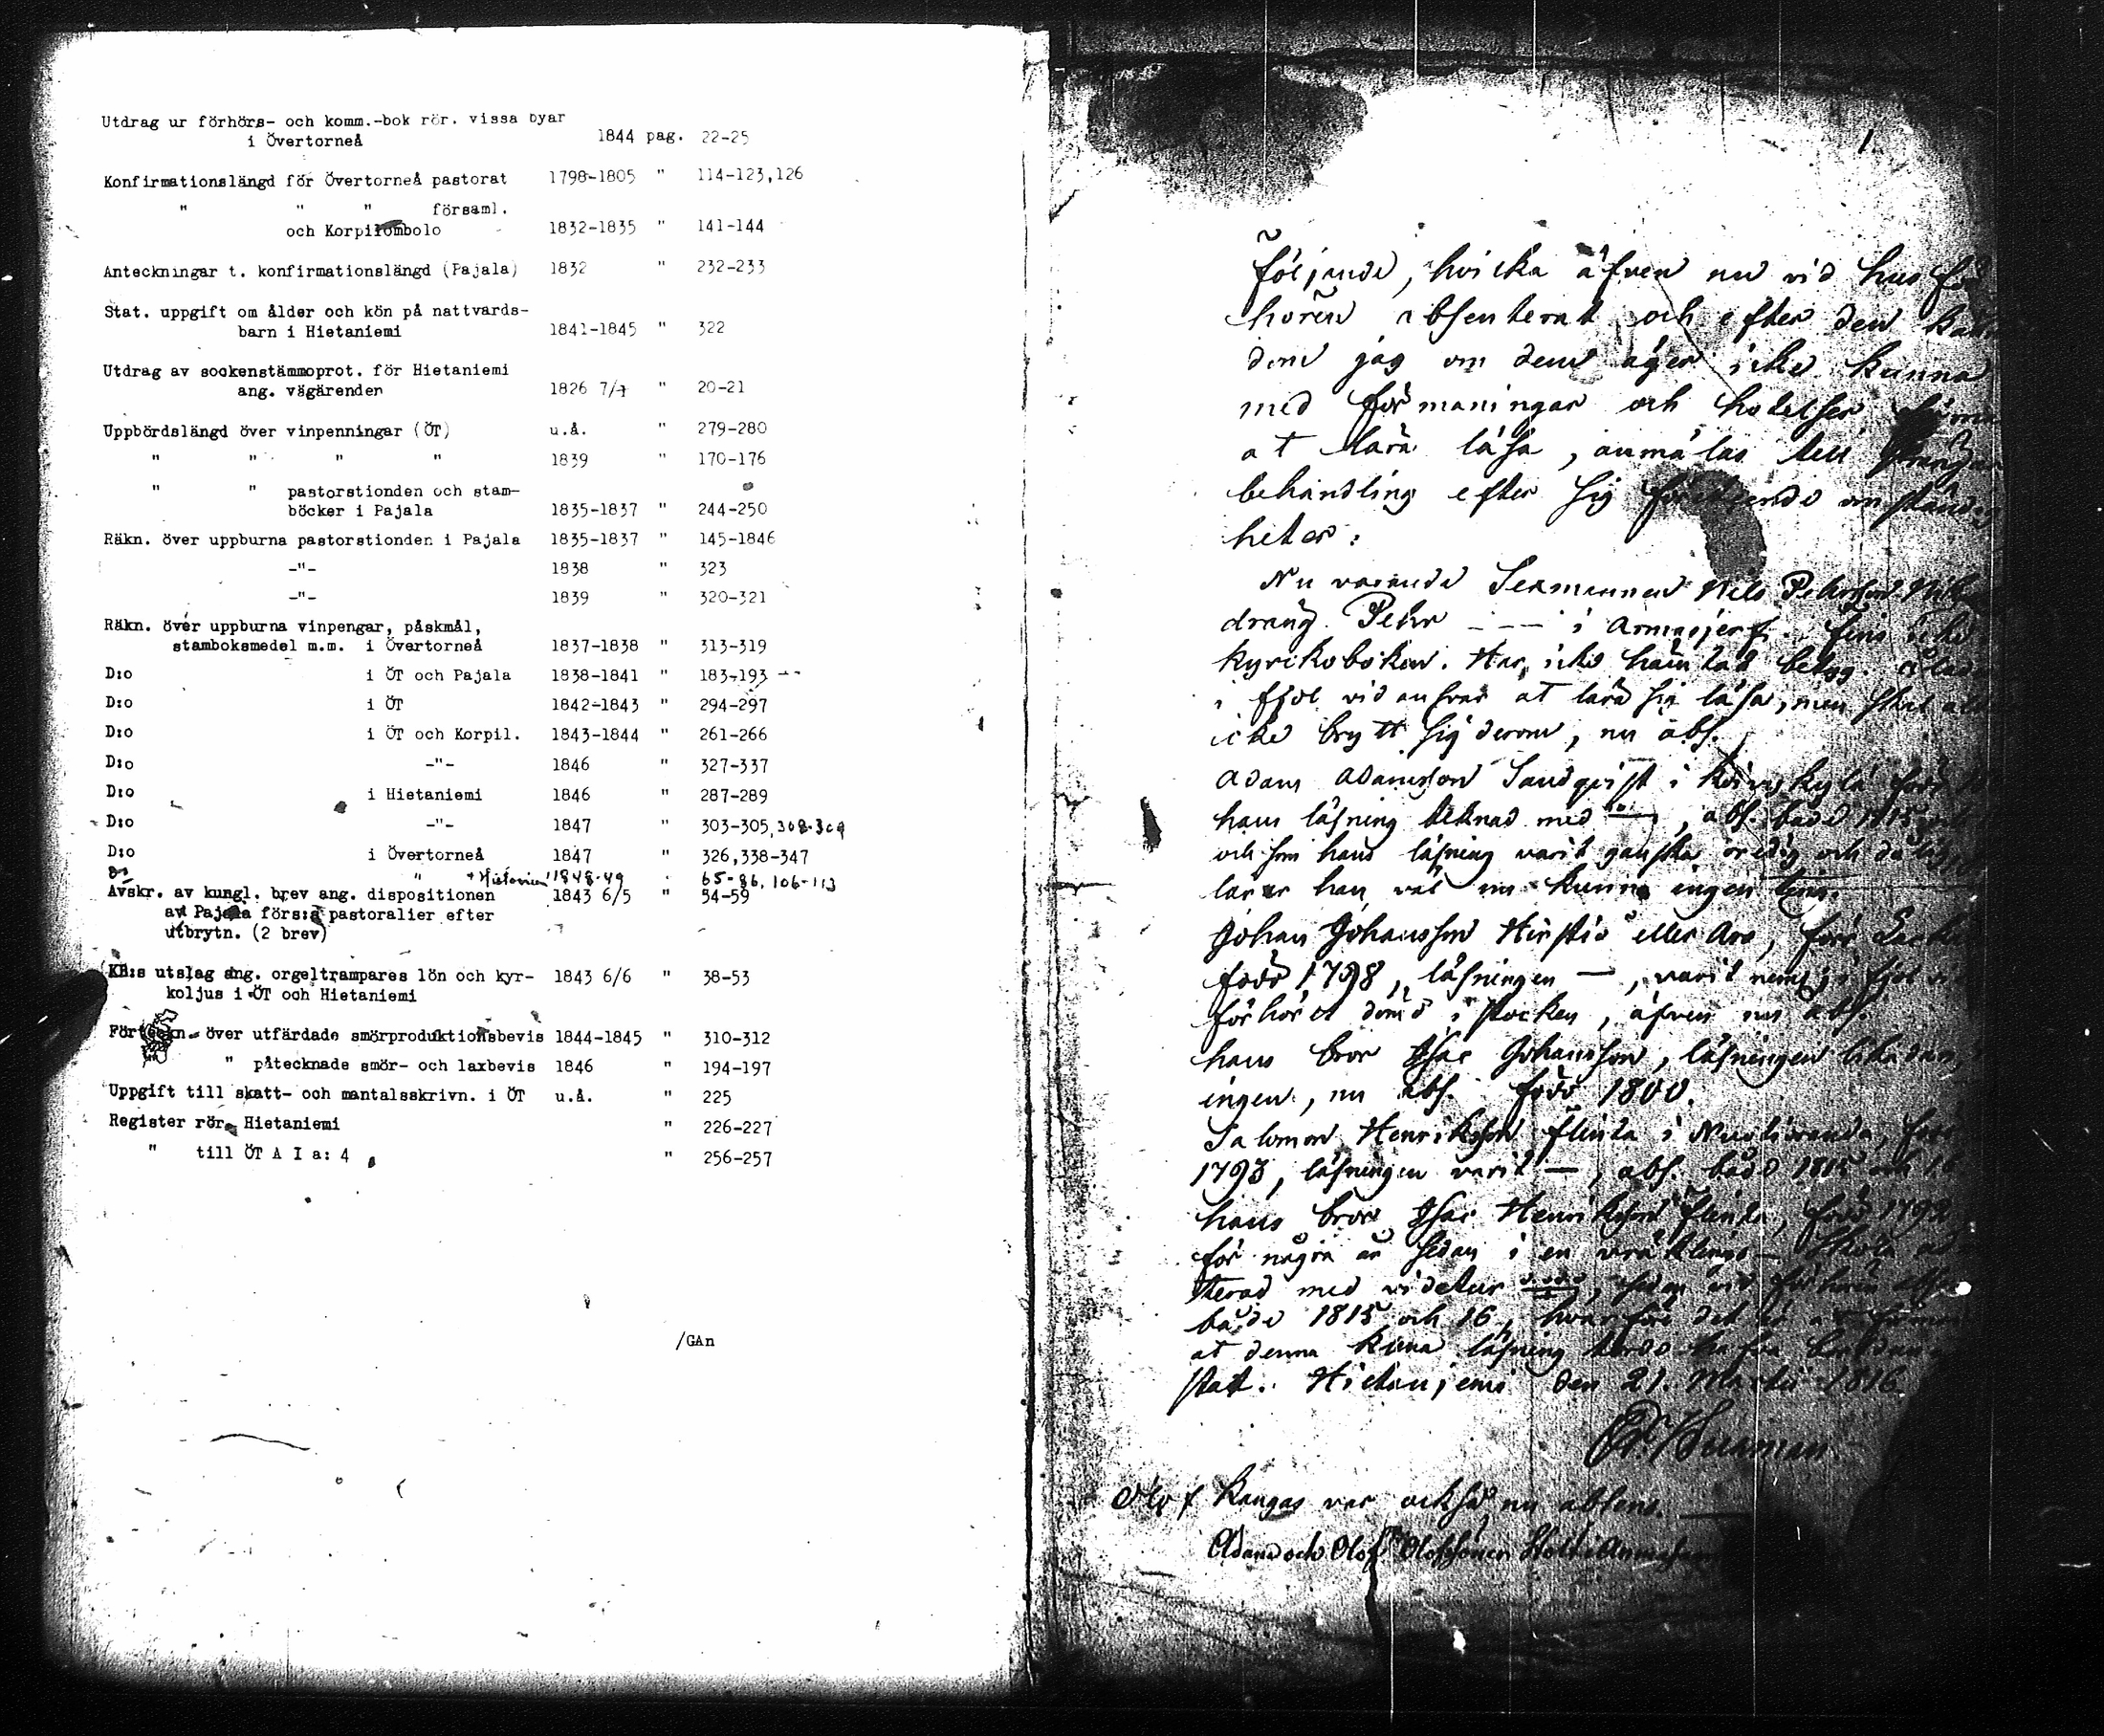 Utdrag ur förhörs- och komm.-bok rör. vissa byar
i Övertorneå 1844 pag. 22-25
Konfirmationslängd för Övertorneå pastorat 1798-1805 " 114-123,126
" " " församl.
och Korpilombolo 1832-1835 " 141-144
Anteckningar t. konfirmationslängd (Pajala) 1832 " 232-233
Stat. uppgift om ålder och kön på nattvards-
barn i Hietaniemi 1841-1845 " 322
Utdrag av sockenstämmoprot. för Hietaniemi
ang. vägärenden 1826 7/7 " 20-21
Uppbördslängd över vinpenningar (ÖT) u.å. " 279-280
" " " " 1839 " 170-176
" " pastorstionden och stam-
böcker i Pajala 1835-1837 " 244-250
Räkn. över uppburna pastorstionden i Pajala 1835-1837 " 145-1846
-"- 1838 " 323
-"- 1839 " 320-321
Räkn. över uppburna vinpengar, påskmål,
stamboksmedel m.m. i Övertorneå 1837-1838 " 313-319
D:o i ÖT och Pajala 1838-1841 " 183-193
D:o i ÖT 1842-1843 " 294-297
D:o i ÖT och Korpil. 1843-1844 " 261-266
D:o -"- 1846 " 327-337
D:o i Hietaniemi 1846 " 287-289
D:o -"- 1847 " 303-305, 308-309
D:o i Övertorneå 1847 " 326,338-347
" 1848-49 " 65-86, 106-113
Avskr. av kungl. brev ang. dispositionen 1843 6/5 " 54-59
av Pajala förs:s pastoralier efter
utbrytn. (2 brev)
KB:s utslag ang. orgeltrampares lön och kyr- 1843 6/6 " 38-53
koljus i ÖT och Hietaniemi
Förteckn. över utfärdade smörproduktionsbevis 1844-1845 " 310-312
" påtecknade smör- och laxbevis 1846 " 194-197
Uppgift till skatt- och mantalsskrivn. i ÖT u.å. " 225
Register rör. Hietaniemi " 226-227
" till ÖT A I a: 4 " 256-257
/GAn
1.
Följande, hvilka äfven nu vid hus
hören absenterat och efter den
dom jag om dem äger icke kunna
med förmaningar och hotelser
at lära läsa, anmälas till
behandling efter sig företeende omständig
heter:
Nu varande Sexmannen Nils Pehrsson
dräng Pehr --- i Armasjerfi. fins icke
kyrikoboken. Har icke hämtat betyg.
i fjol vid ansvar at lära sig läsa, men
icke brytt sig derom, nu abs.
Adam Adamsson Sandqvist i
hans läsning teknad med , abs. både 1815
och som hans läsning varit ganska oredig och
lärer han väl nu kunna ingen ting.
Johan Johansson eller
född 1798, läsningen —, varit i fjol
förhöret dömd i stocken, äfven nu abs.
hans bror Isac Johansson, läsningen likadan,
ingen, nu abs. född 1800.
Salomon Henriksson Flinta i
1793, läsningen varit —, abs. både 1815 och 16
hans bror Isac Henriksson Flinta, född 1792
för några år sedan i en
med videtur , sedan vid förhören
både 1815 och 16, hvarföre det är
at denna läsning
stat. Hietaniemi den 21. Martii 1816.
Olof Kangas var också nu absens.
Adam och Olof Olofssöner